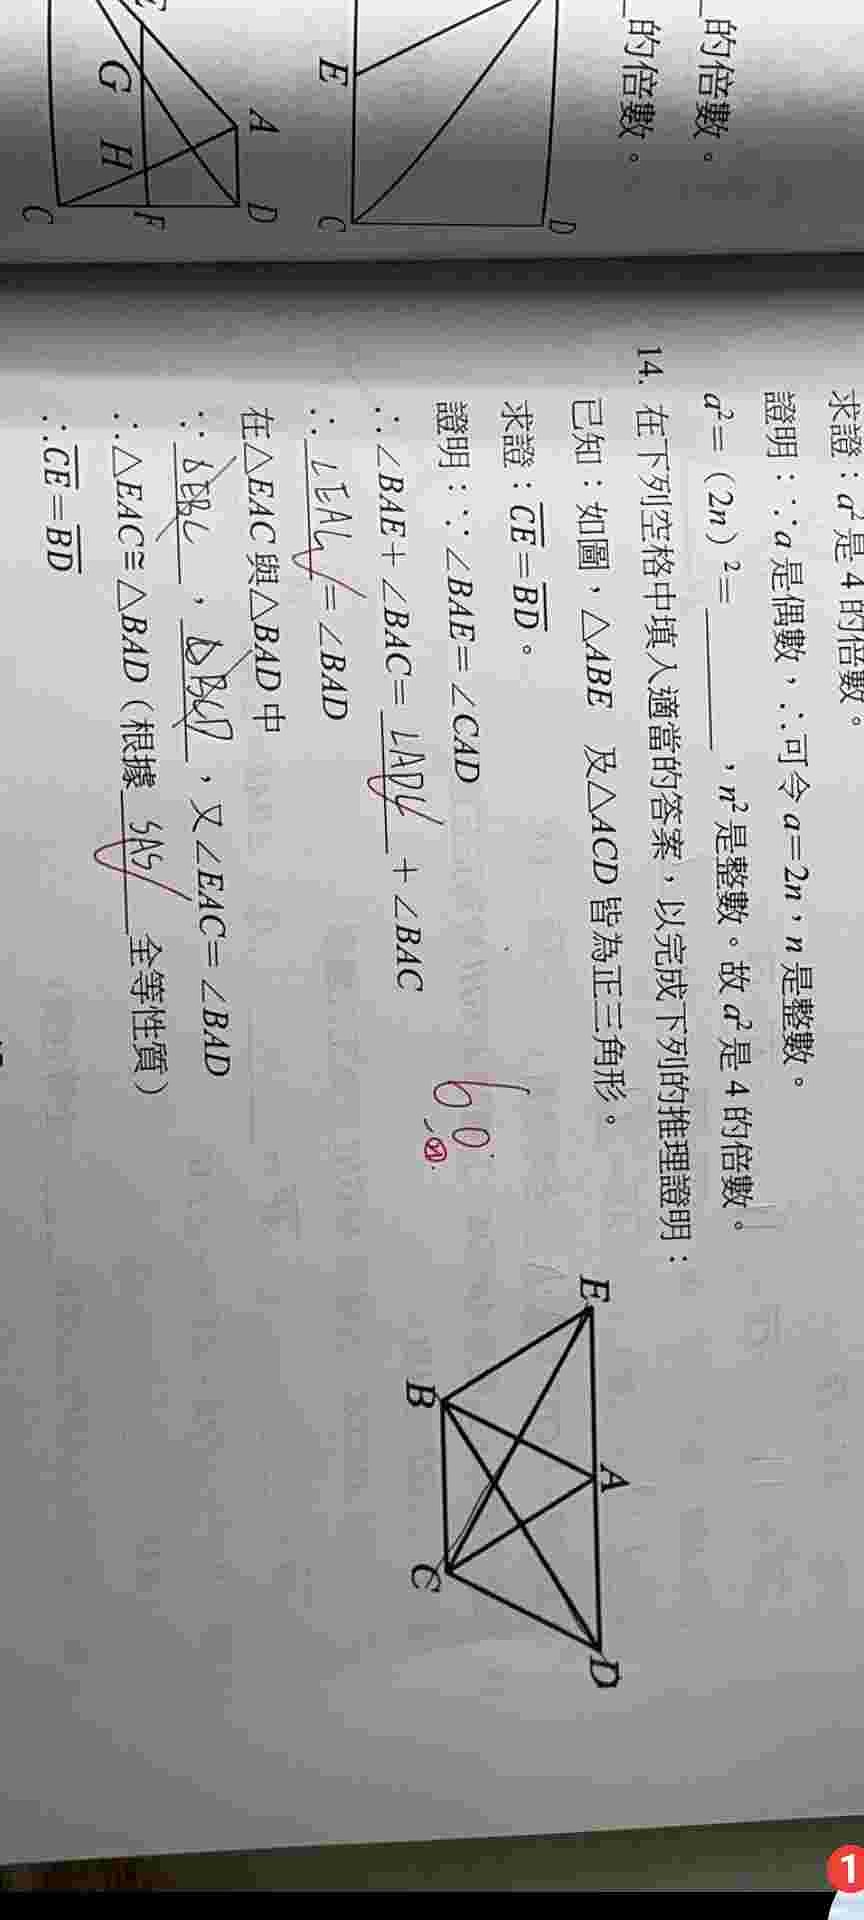 的倍數。
的倍數。
E
D
C
A
D
G
H
F
C
求證：a²是4的倍數。
證明：∵a是偶數，∴可令a=2n，n是整數。
a²=(2n)²=______，n²是整數。故a²是4的倍數。
14. 在下列空格中填入適當的答案，以完成下列的推理證明：
已知：如圖，△ABE 及△ACD皆為正三角形。
求證：CE=BD。
證明：∵∠BAE=∠CAD
∴∠BAE+∠BAC=∠ADC+∠BAC
∴∠EAC=∠BAD
在△EAC與△BAD中
∵△EBC，△BCD，又∠EAC=∠BAD
∴△EAC≅△BAD（根據 SAS 全等性質）
∴CE=BD
60
E
A
D
B
C
1